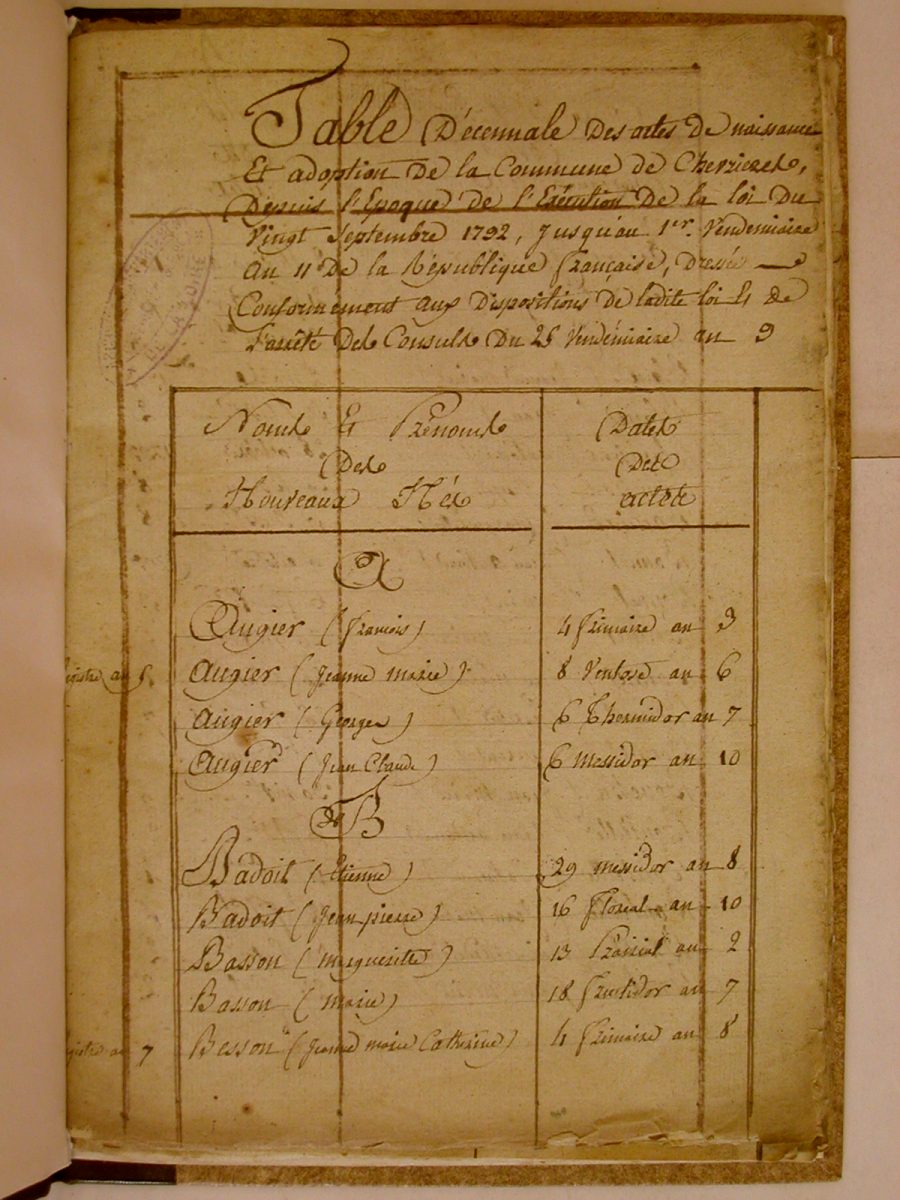 Table Décennale Des actes De naissance
Et adoption De la Commune de Chevrieres,
Depuis l'Epoque de l'Exécution De la loi Du
Vingt Septembre 1792, Jusqu'au 1er. Vendemiaire
An 11 De la République française, Dressée
Conformément aux Dispositions De ladite loi Et de
l'arrêté Des Consuls Du 25 Vendémiaire an 9
Noms Et Prénoms
Des
Nouveaux Nés
Dates
Des
actes
A
Augier (françois) 4 frimaire an 3
Augier (Jeanne marie) 8 Ventose an 6
Augier (Georges) 6 Thermidor an 7
Augier (Jean Claude) 6 Messidor an 10
B
Badoit (Etienne) 29 messidor an 8
Badoit (Jean pierre) 16 floreal an 10
Basson (marguerite) 13 Prairial an 2
Basson (marie) 18 fructidor an 7
an 7 Besson (Jeanne marie Catherine) 4 frimaire an 8